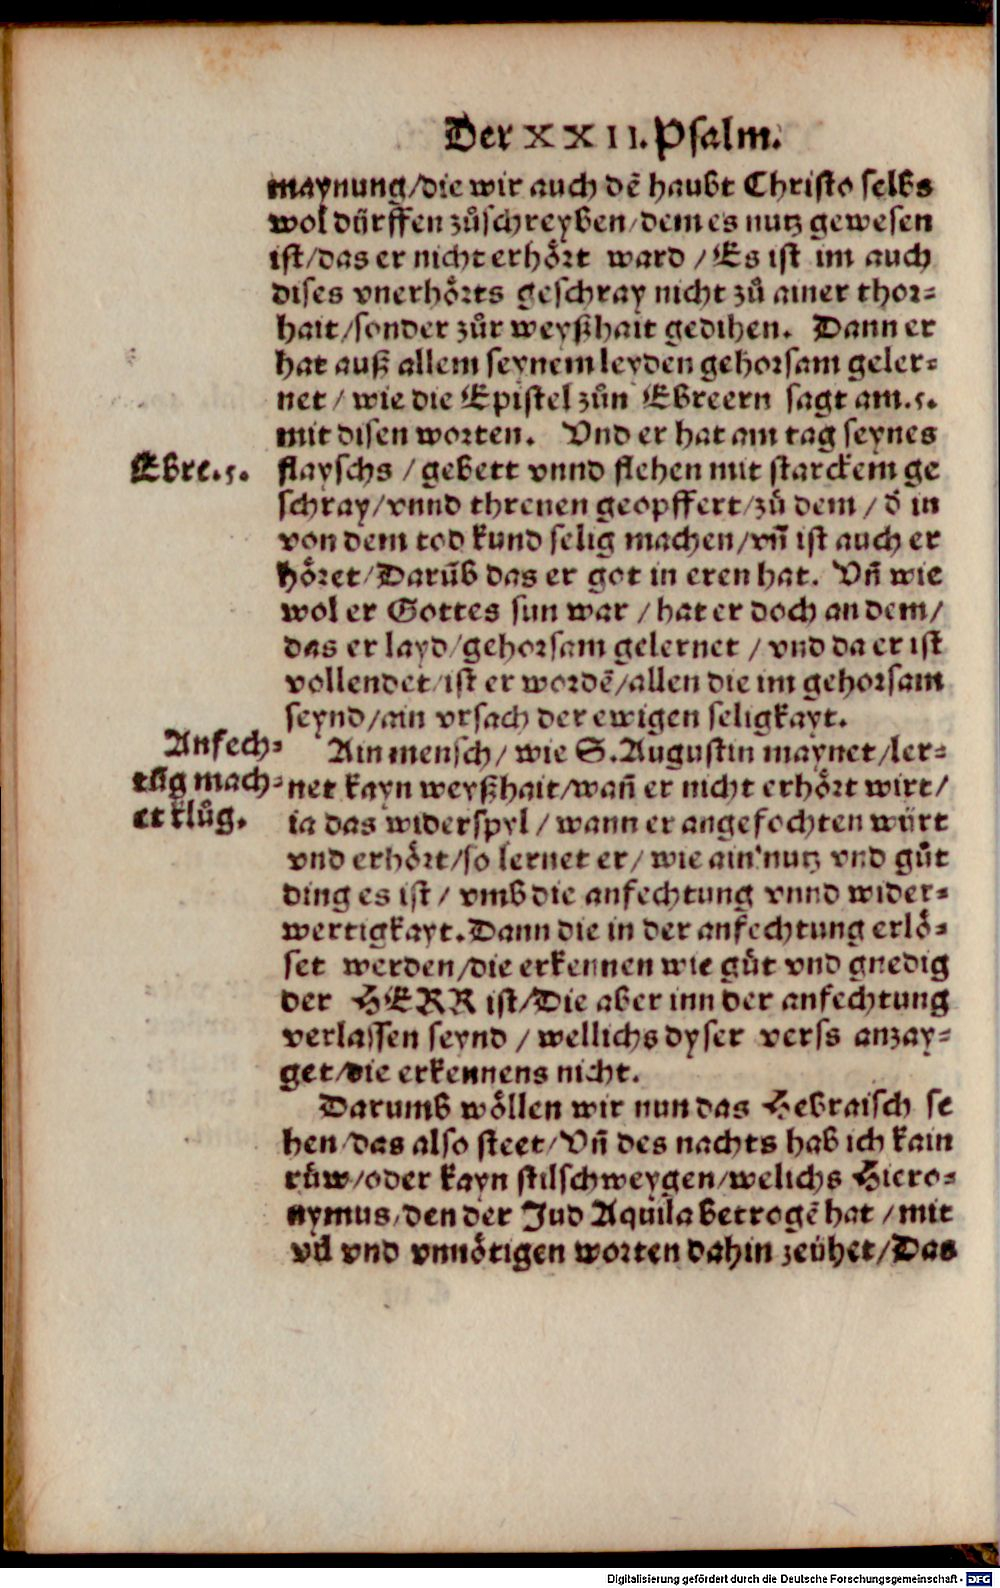 Der XXII. Psalm.
maynung/die wir auch dẽ haubt Christo selbs
wol dürffen zůschreyben/dem es nutz gewesen
ist/das er nicht erhört ward/Es ist im auch
dises vnerhörts geschray nicht zů ainer thor⸗
hait/sonder zůr weyßhait gedihen. Dann er
hat auß allem seynem leyden gehorsam geler⸗
net/wie die Epistel zůn Ebreern sagt am.5.
mit disen worten. Vnd er hat am tag seynes
Ebre.5.
flayschs/gebett vnnd flehen mit starckem ge
schray/vnnd threnen geopffert/zů dem/d̕ in
von dem tod kund selig machen/vñ ist auch er
höret/Darũb das er got in eren hat. Vñ wie
wol er Gottes sun war/hat er doch an dem/
das er layd/gehorsam gelernet/vnd da er ist
vollendet/ist er wordẽ/allen die im gehorsam
seynd/ain vrsach der ewigen seligkayt.
Anfech⸗
tũg mach⸗
et klůg.
Ain mensch/wie S. Augustin maynet/ler⸗
net kayn weyßhait/wañ er nicht erhört wirt/
ia das widerspyl/wann er angefochten würt
vnd erhört/so lernet er/wie ain nutz vnd gůt
ding es ist/vmb die anfechtung vnnd wider⸗
wertigkayt. Dann die in der anfechtung erlö⸗
set werden/die erkennen wie gůt vnd gnedig
der HERR ist/Die aber inn der anfechtung
verlassen seynd/wellichs dyser verss anzay⸗
get/die erkennens nicht.
Darumb wöllen wir nun das Hebraisch se
hen/das also steet/Vñ des nachts hab ich kain
růw/oder kayn stilschweygen/welichs Hiero⸗
nymus/den der Jud Aquila betrogẽ hat/mit
vil vnd vnnötigen worten dahin zeühet/Das
Digitalisierung gefördert durch die Deutsche Forschungsgemeinschaft - DFG